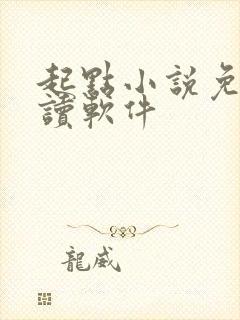 起點小説免
讀軟件
龍威